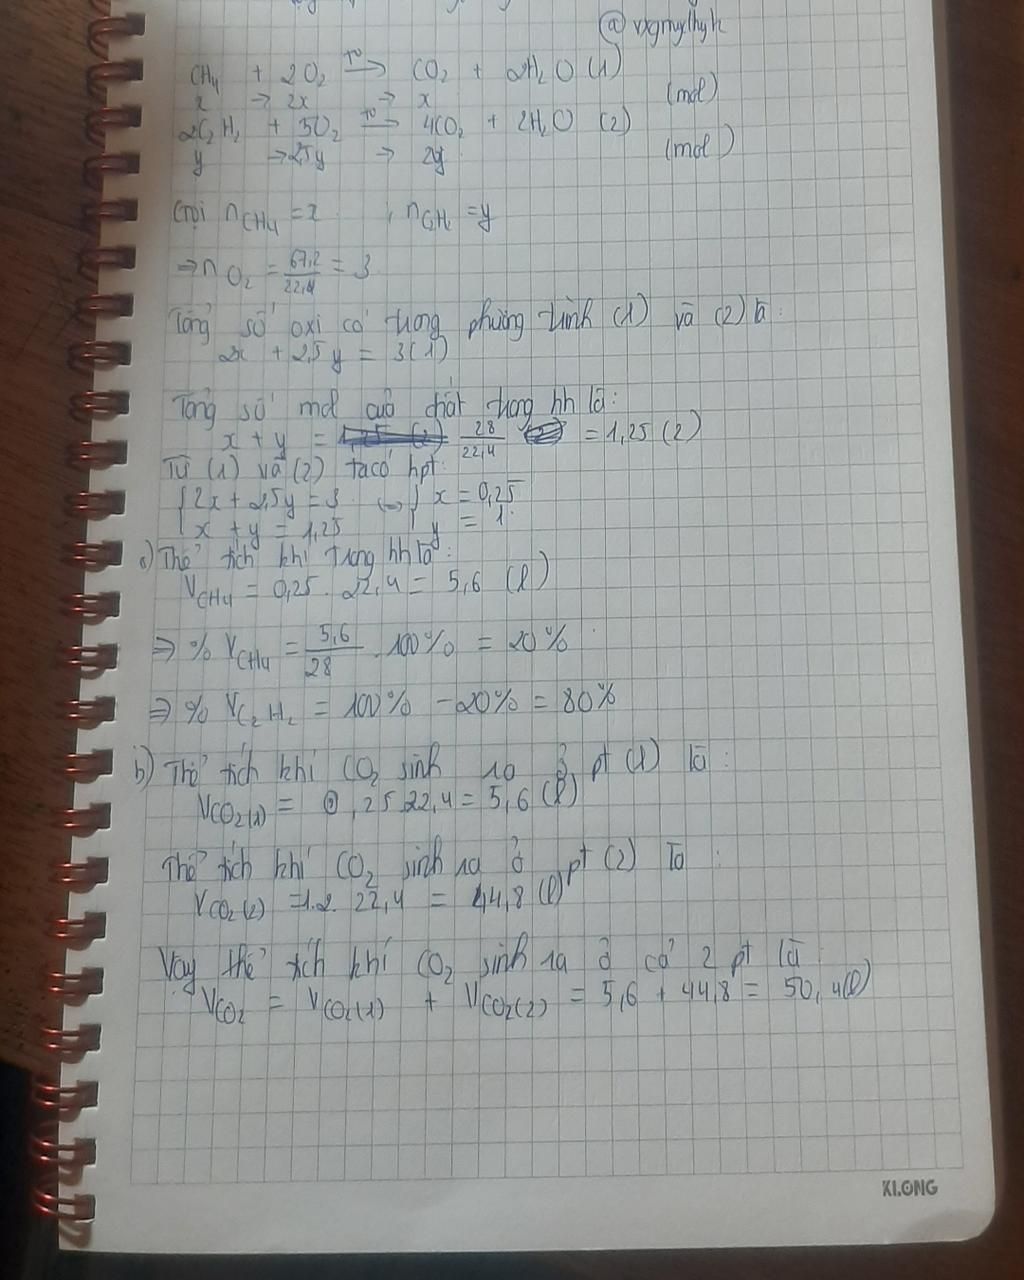 @ vxgnuylhyh
CH₄ + 2O₂ →(t⁰) CO₂ + 2H₂O (1)
x → 2x → x (mol)
2C₂H₂ + 5O₂ →(t⁰) 4CO₂ + 2H₂O (2)
y → 2,5y → 2y (mol)
Gọi nCH₄ = x , nC₂H₂ = y
⇒ nO₂ = 67,2/22,4 = 3
Tổng số oxi có trong phương trình (1) và (2) là:
2x + 2,5y = 3 (1)
Tổng số mol của chất trong hh là:
x + y = 28/22,4 = 1,25 (2)
Từ (1) và (2) ta có hpt:
{2x + 2,5y = 3 ⇔ { x = 0,25
{x + y = 1,25 { y = 1
a) Thể tích khí trong hh là:
VCH₄ = 0,25 . 22,4 = 5,6 (l)
⇒ % VCH₄ = 5,6/28 . 100% = 20%
⇒ % VC₂H₂ = 100% - 20% = 80%
b) Thể tích khí CO₂ sinh ra ở pt (1) là:
VCO₂(1) = 0,25.22,4 = 5,6 (l)
Thể tích khí CO₂ sinh ra ở pt (2) là:
VCO₂(2) = 1.2. 22,4 = 44,8 (l)
Vậy thể tích khí CO₂ sinh ra ở cả 2 pt là:
VCO₂ = VCO₂(1) + VCO₂(2) = 5,6 + 44,8 = 50,4(l)
KLONG